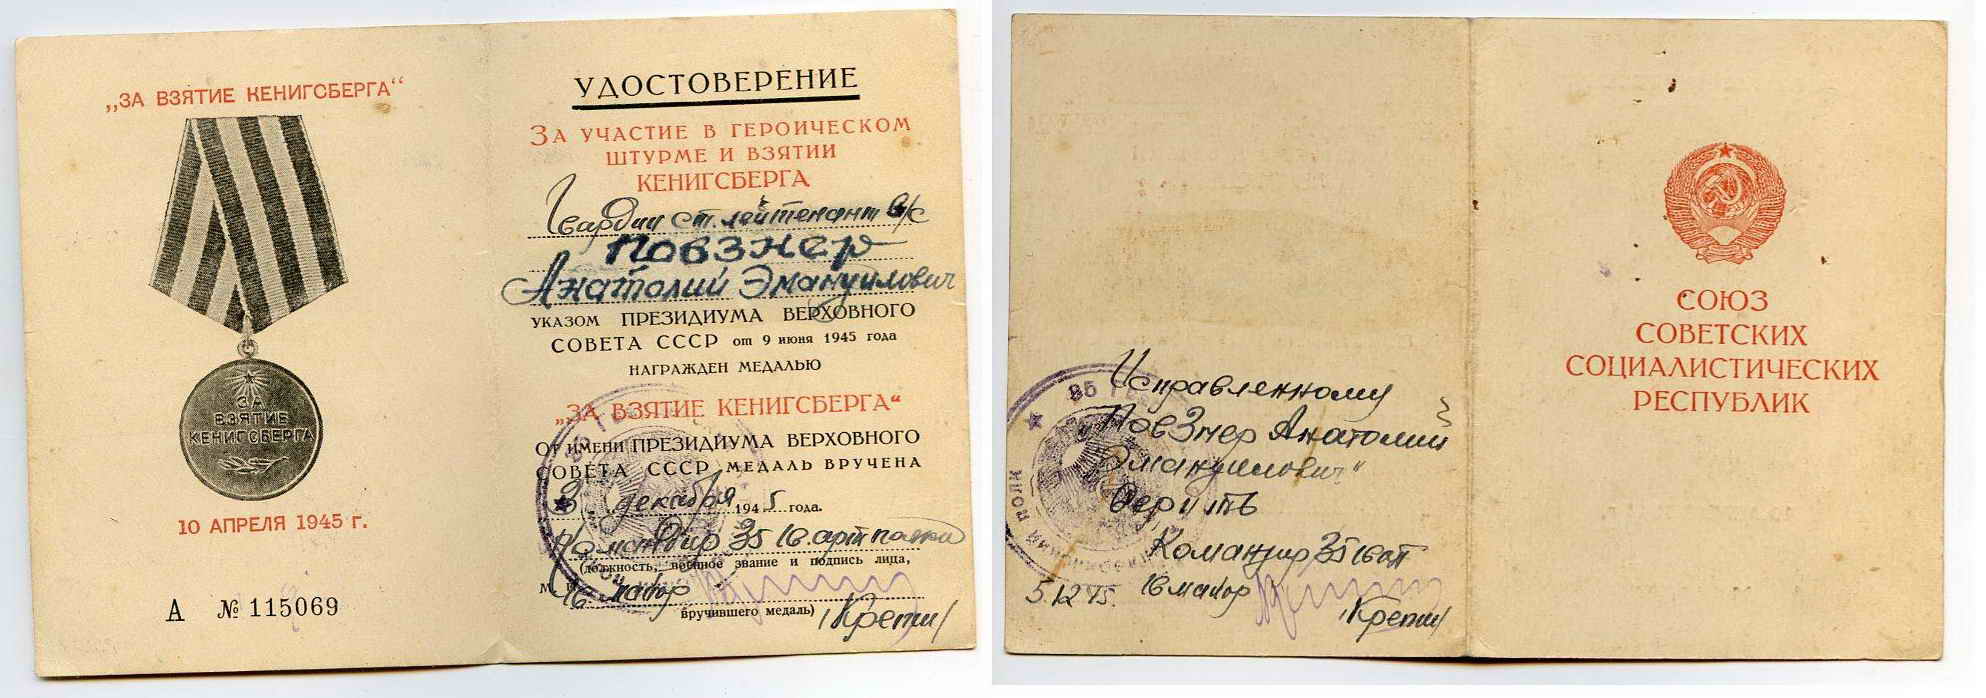 „ЗА ВЗЯТИЕ КЕНИГСБЕРГА“
ЗА
ВЗЯТИЕ
КЕНИГСБЕРГА
10 АПРЕЛЯ 1945 г.
А № 115069
УДОСТОВЕРЕНИЕ
ЗА УЧАСТИЕ В ГЕРОИЧЕСКОМ
ШТУРМЕ И ВЗЯТИИ
КЕНИГСБЕРГА
Гвардии ст. лейтенант в/с
Повзнер
Анатолий Эмануилович
УКАЗОМ ПРЕЗИДИУМА ВЕРХОВНОГО
СОВЕТА СССР от 9 июня 1945 года
НАГРАЖДЕН МЕДАЛЬЮ
„ЗА ВЗЯТИЕ КЕНИГСБЕРГА“
ОТ ИМЕНИ ПРЕЗИДИУМА ВЕРХОВНОГО
СОВЕТА СССР МЕДАЛЬ ВРУЧЕНА
3 декабря 1945 года.
Командир 35 гв артполка
(должность, военное звание и подпись лица,
М гв майор
вручившего медаль)
Исправленному
Повзнер Анатолий
Эмануилович"
Верить
Командир 35 гвап
5.12.45. гв майор
СОЮЗ
СОВЕТСКИХ
СОЦИАЛИСТИЧЕСКИХ
РЕСПУБЛИК